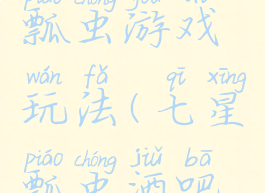 piáo chóng yóu xì
瓢虫游戏
wán fǎ qī xīng
玩法(七星
piáo chóng jiǔ bā
瓢虫酒吧